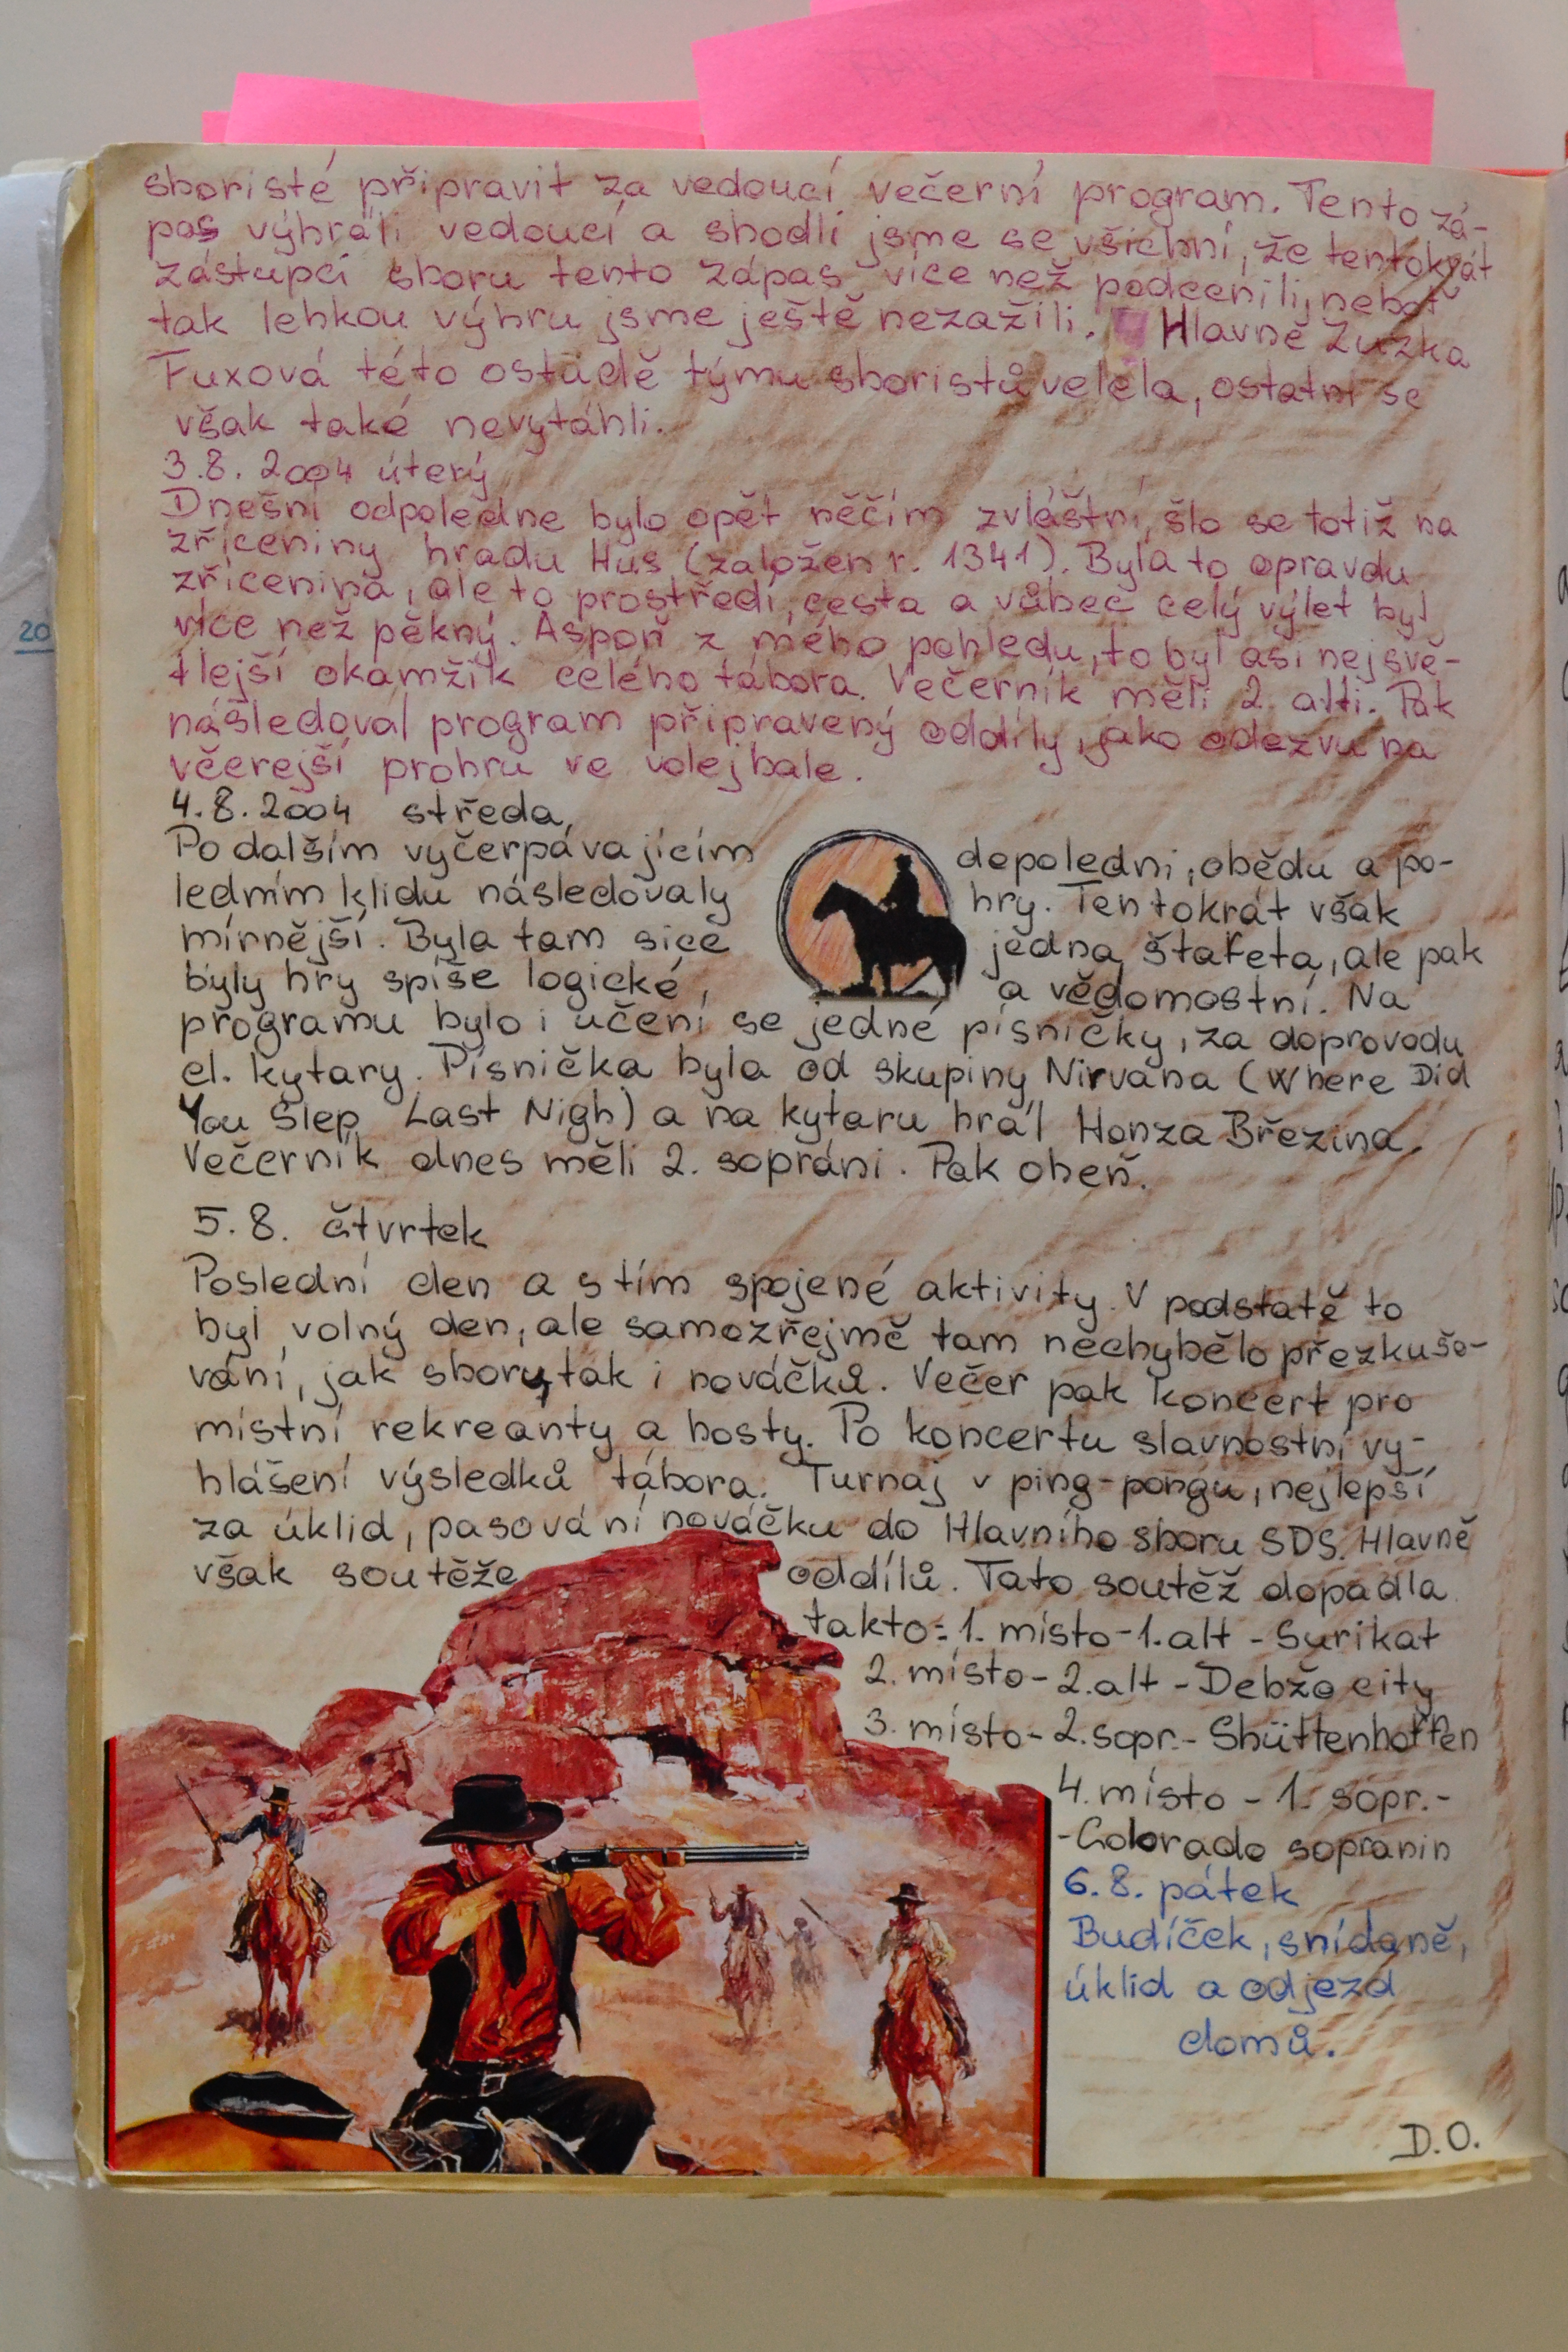 sboristé připravit za vedoucí večerní program. Tento zá-
pas výhráli vedoucí a shodli jsme se všichni, že tentokrát
zástupci sboru tento zápas více než podcenili, neboť
tak lehkou výhru jsme ještě nezažili. Hlavně Zuzka
Fuxová této ostudě týmu sboristů velela, ostatní se
však také nevytáhli.
3.8.2004 úterý
Dnešní odpoledne bylo opět něčím zvláštní, šlo se totiž na
zříceniny hradu Hus (založen r. 1341). Byla to opravdu
zřícenina, ale to prostředí, cesta a vůbec celý výlet byl
více než pěkný. Aspoň z mého pohledu, to byl asi nejsvě-
tlejší okamžik celého tábora. Večerník měli 2. alti. Pak
následoval program připravený oddíly, jako odezvu na
včerejší prohru ve volejbale.
4.8.2004 středa,
Po dalším vyčerpávajícím dopoledni, obědu a po-
ledním klidu následovaly hry. Tentokrát však
mírnější. Byla tam sice jedna štafeta, ale pak
byly hry spíše logické, a vědomostní. Na
programu bylo i učení se jedné písničky, za doprovodu
el. kytary. Písnička byla od skupiny Nirvana (Where Did
You Slep Last Nigh) a na kytaru hrál Honza Březina.
Večerník dnes měli 2. sopráni. Pak oheň.
5.8. čtvrtek
Poslední den a s tím spojené aktivity. V podstatě to
byl volný den, ale samozřejmě tam nechybělo přezkušo-
vání, jak sboru, tak i nováčků. Večer pak koncert pro
místní rekreanty a hosty. Po koncertu slavnostní vy-
hlášení výsledků tábora. Turnaj v ping-pongu, nejlepší
za úklid, pasování nováčku do Hlavního sboru SDS. Hlavně
však soutěže oddílů. Tato soutěž dopadla
takto: 1. místo - 1. alt - Surikat
2. místo - 2. alt - Debžo city
3. místo - 2. sopr. - Shüttenhoffen
4. místo - 1. sopr. -
- Colorado sopranin
6.8. pátek
Budíček, snídaně,
úklid a odjezd
domů.
D.O.
20